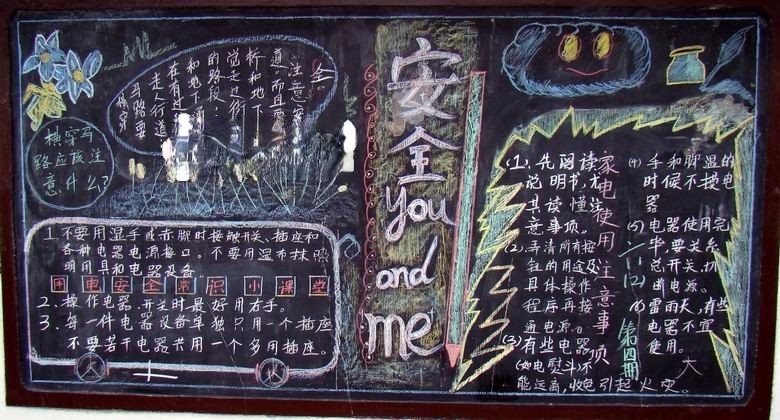 横穿
马路要
走人行道
在有过街
的路段：
觉走过街
桥和地下
道。而且要
注意安
全。
横穿马
路应该注
意什么？
1、不要用湿手或赤脚时接触开关、插座和
各种电器电源接口。不要用湿布抹照
明用具和电器设备
用电安全常识小课堂
2、操作电器开关时最好用右手。
3、每一件电器设备单独只用一个插座
不要若干电器共用一个多用插座。
火
火
安全
you
and
me
家电使用注意事项
(1)、先阅读
说明书，尤
其读懂注
意事项。
(2)、弄清所有按
钮的用途及
具体操作
程序再接
通电源。
(3)有些电器
(如电熨斗)不
能远离，引起火灾。
(4) 手和脚湿的
时候不摸电
器
(5) 电器使用完
毕，要关
总开关，切
断电源。
(6) 雷雨天，有些
电器不宜
使用。
第四期
大